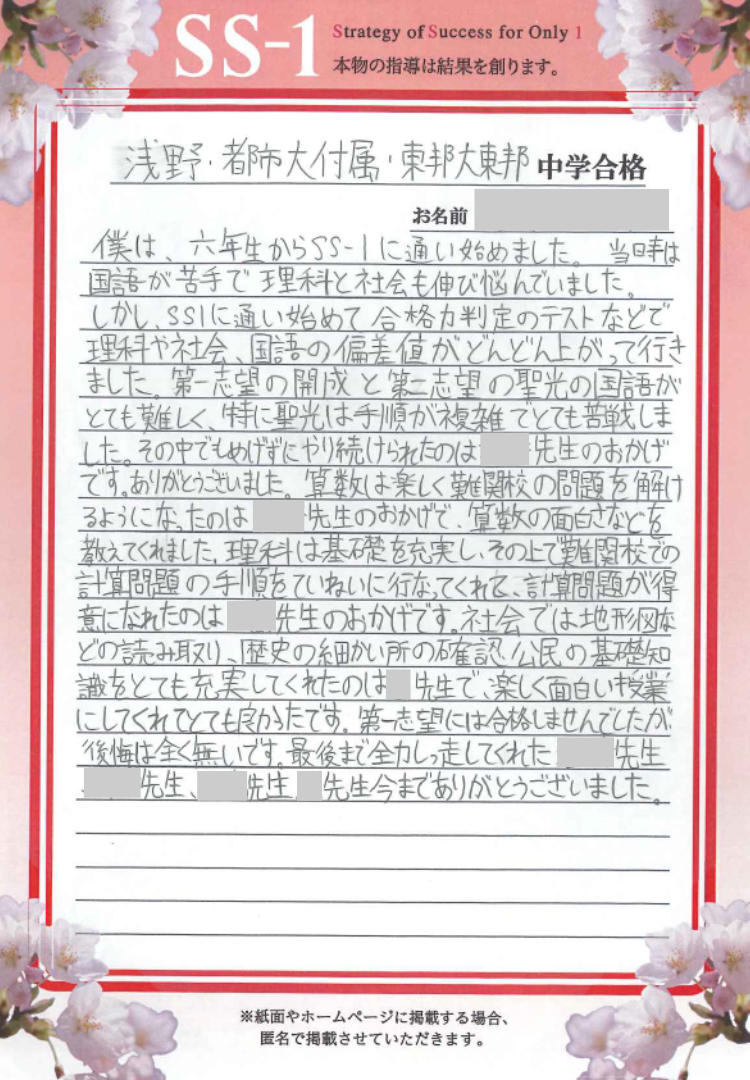 SS-1
Strategy of Success for Only 1
本物の指導は結果を創ります。
浅野・都市大付属・東邦大東邦 中学合格
お名前
僕は、六年生からSS-1に通い始めました。 当時は
国語が苦手で理科と社会も伸び悩んでいました。
しかし、SS1に通い始めて合格力判定のテストなどで
理科や社会、国語の偏差値がどんどん上がって行き
ました。第一志望の開成と第二志望の聖光の国語が
とても難しく、特に聖光は手順が複雑でとても苦戦しま
した。その中でもめげずにやり続けられたのは 先生のおかげ
です。ありがとうございました。算数は楽しく難関校の問題を解け
るようになったのは 先生のおかげで、算数の面白さなどを
教えてくれました。理科は基礎を充実し、その上で難関校での
計算問題の手順をていねいに行なってくれて、計算問題が得
意になれたのは 先生のおかげです。社会では地形図な
どの読み取り、歴史の細かい所の確認、公民の基礎知
識をとても充実してくれたのは 先生で、楽しく面白い授業
にしてくれてとても良かったです。第一志望には合格しませんでしたが
後悔は全く無いです。最後まで全力しっ走してくれた 先生
先生、 先生、 先生今までありがとうございました。
※紙面やホームページに掲載する場合、
匿名で掲載させていただきます。